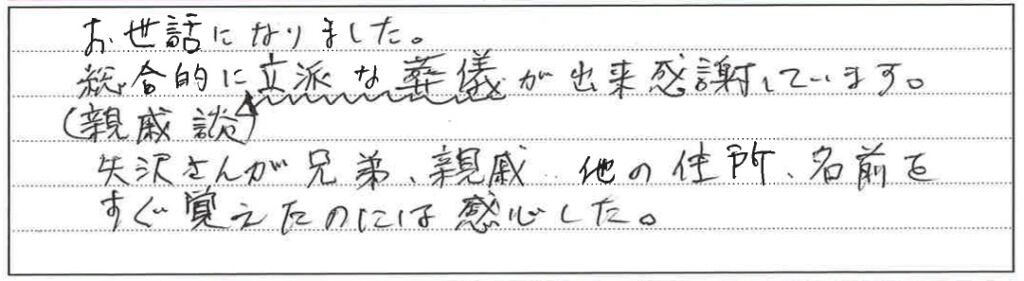 お世話になりました。
総合的に立派な葬儀が出来感謝しています。
(親戚談)
矢沢さんが兄弟、親戚、他の住所、名前を
すぐ覚えたのには感心した。